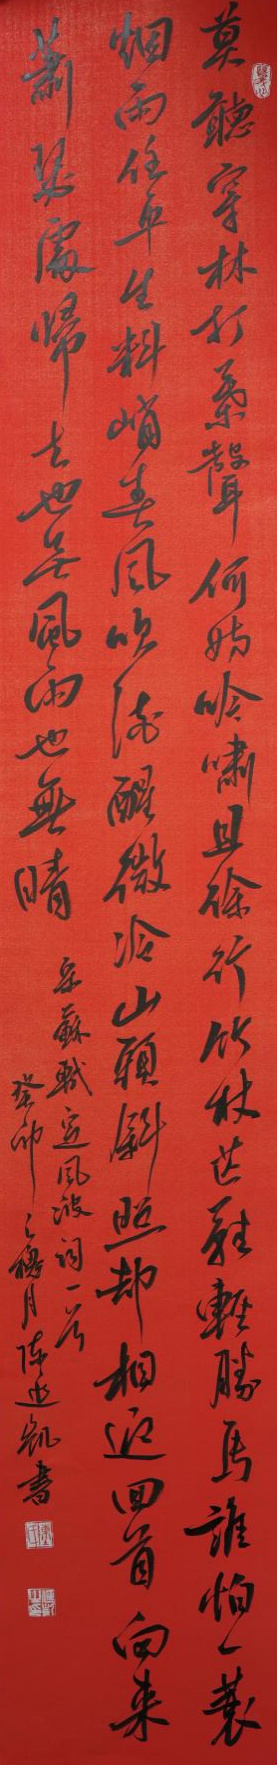 莫聽穿林打葉聲何妨吟嘯且徐行竹杖芒鞋輕勝馬誰怕一蓑
烟雨任平生料峭春風吹酒醒微冷山頭斜照却相迎回首向来
蕭瑟處歸去也无風雨也無晴
宋蘇軾定風波詞一首
癸卯之穐月陈进凯書